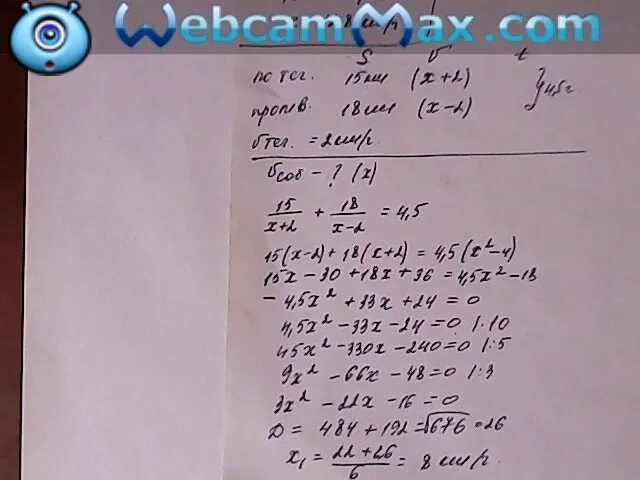 WebcamMax.com
= 8 км/г
S v t
по теч. 15 км (x+2) } 4,5 г.
против. 18 км (x-2)
v теч. = 2 км/г.
v соб - ? (x)
15/(x+2) + 18/(x-2) = 4,5
15(x-2)+18(x+2) = 4,5(x²-4)
15x-30+18x+36 = 4,5x²-18
-4,5x²+33x+24=0
4,5x²-33x-24=0 |·10
45x²-330x-240=0 |:5
9x²-66x-48=0 |:3
3x²-22x-16=0
D= 484+192=√676=26
x₁ = (22+26)/6 = 8 км/г.